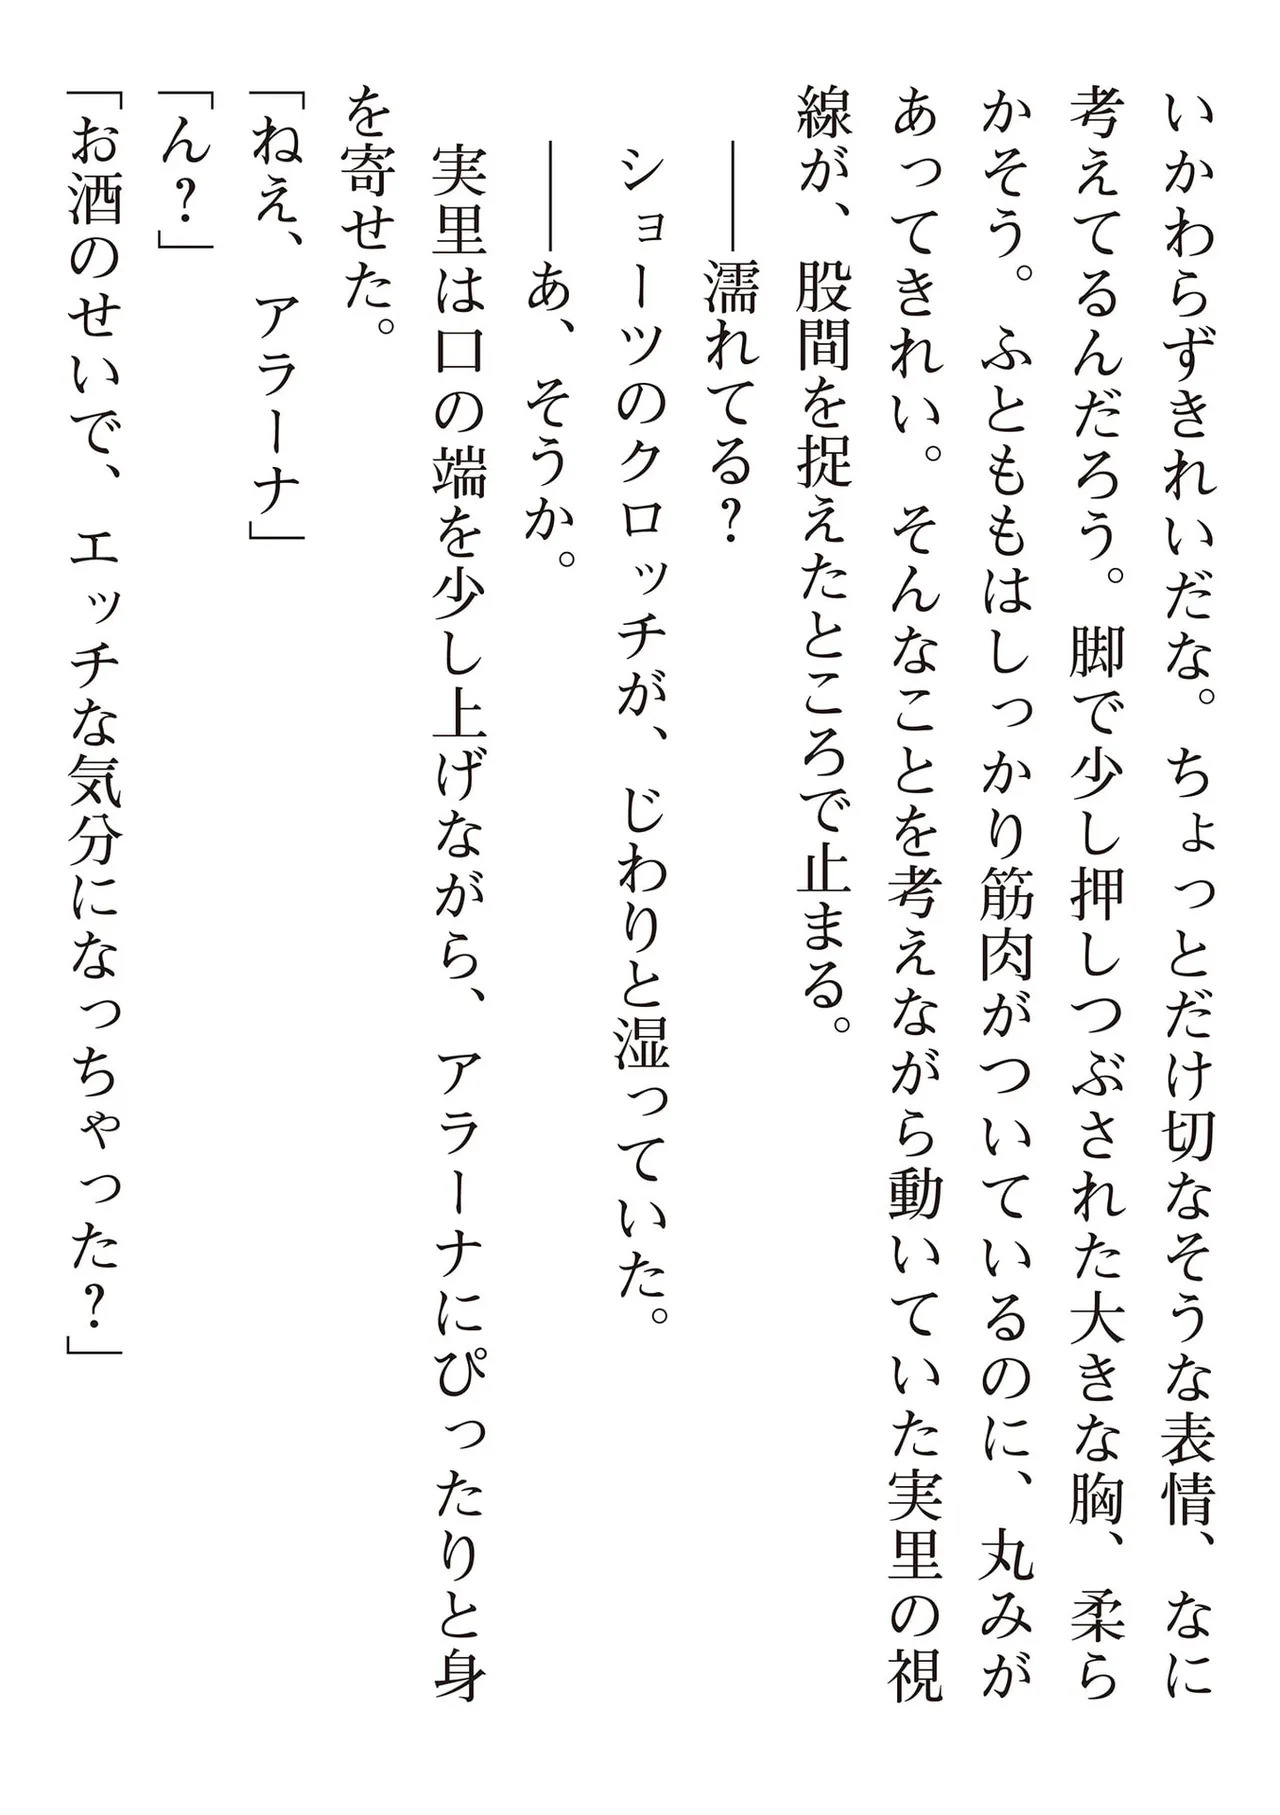 いかわらずきれいだな。ちょっとだけ切なそうな表情、なに
考えてるんだろう。脚で少し押しつぶされた大きな胸、柔ら
かそう。ふとももはしっかり筋肉がついているのに、丸みが
あってきれい。そんなことを考えながら動いていた実里の視
線が、股間を捉えたところで止まる。
――濡れてる?
ショーツのクロッチが、じわりと湿っていた。
――あ、そうか。
実里は口の端を少し上げながら、アラーナにぴったりと身
を寄せた。
「ねえ、アラーナ」
「ん?」
「お酒のせいで、エッチな気分になっちゃった?」